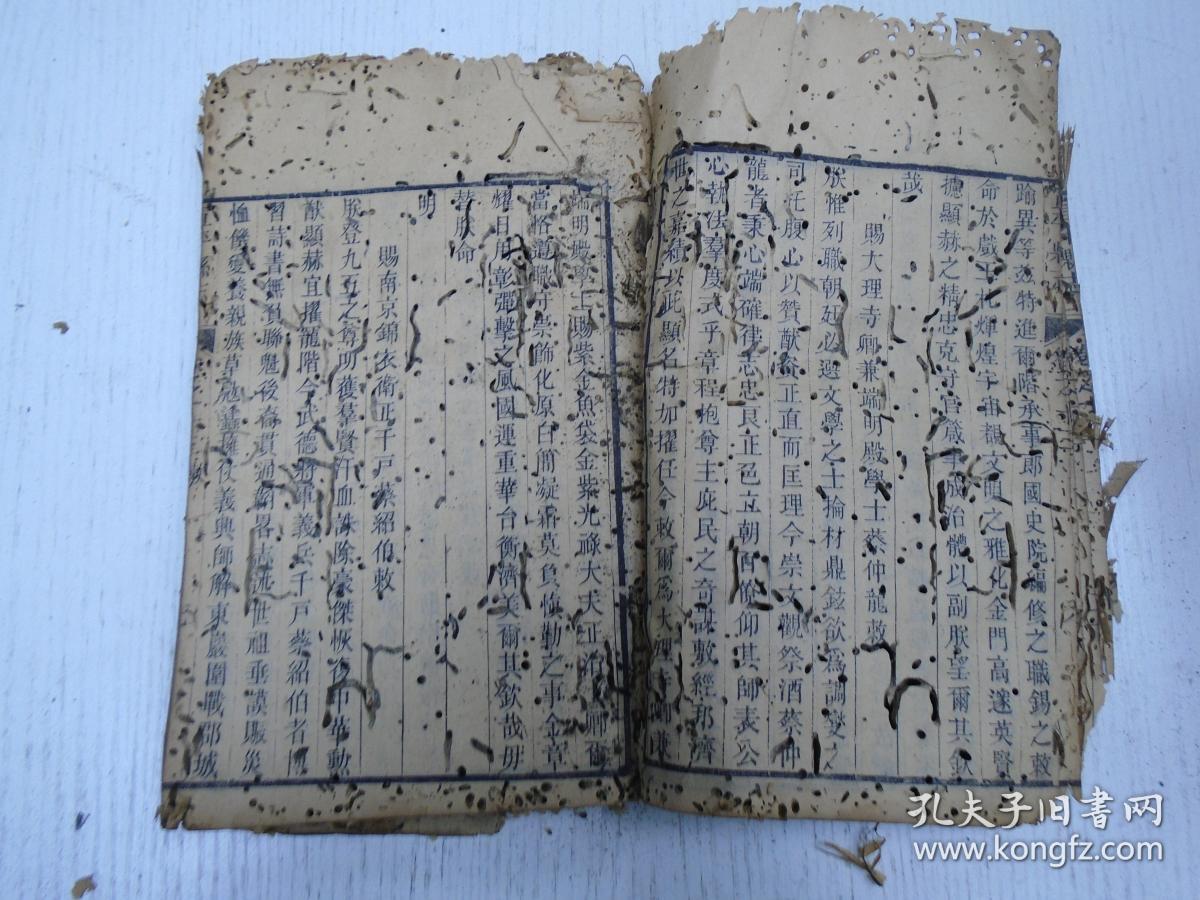 踰異等茲特進爾階承事郎國史院編修之職錫之敕
命於戲玉札煇煌宇宙覩文明之雅化金門高邃英賢
攄顯赫之精忠克守官箴聿成治體以副朕望爾其欽
哉
賜大理寺卿兼端明殿學士蔡仲龍敕
朕惟列職朝廷必選文學之士掄材鼎鉉欲爲調燮之
司托腹心以贊猷俞正直而匡理今崇文觀祭酒蔡仲
龍者秉心端確律志忠良正色立朝百僚仰其師表公
心執法羣度式乎章程抱尊主庇民之奇謀敷經邦濟
世之嘉績以此顯名特加擢任今敕爾爲大理寺卿兼
端明殿學士賜紫金魚袋金紫光祿大夫正治卿爾
當恪遵職守崇飾化原白簡凝霜莫負恤勤之事金章
耀目用彰彈擊之風國運重華台衡濟美爾其欽哉毋
替朕命
明
賜南京錦衣衛正千戶蔡紹伯敕
朕登九五之尊所獲羣賢汗血誅除豪傑恢復中華勳
猷顯赫宜擢龍階今武德將軍義兵千戶蔡紹伯者博
習詩書無負聯魁後裔貫通韜畧志誠世祖垂謨賑災
恤儉愛養親族草寇蠭擁仗義興師解東巖圍戰郡城
孔夫子旧书网
www.kongfz.com